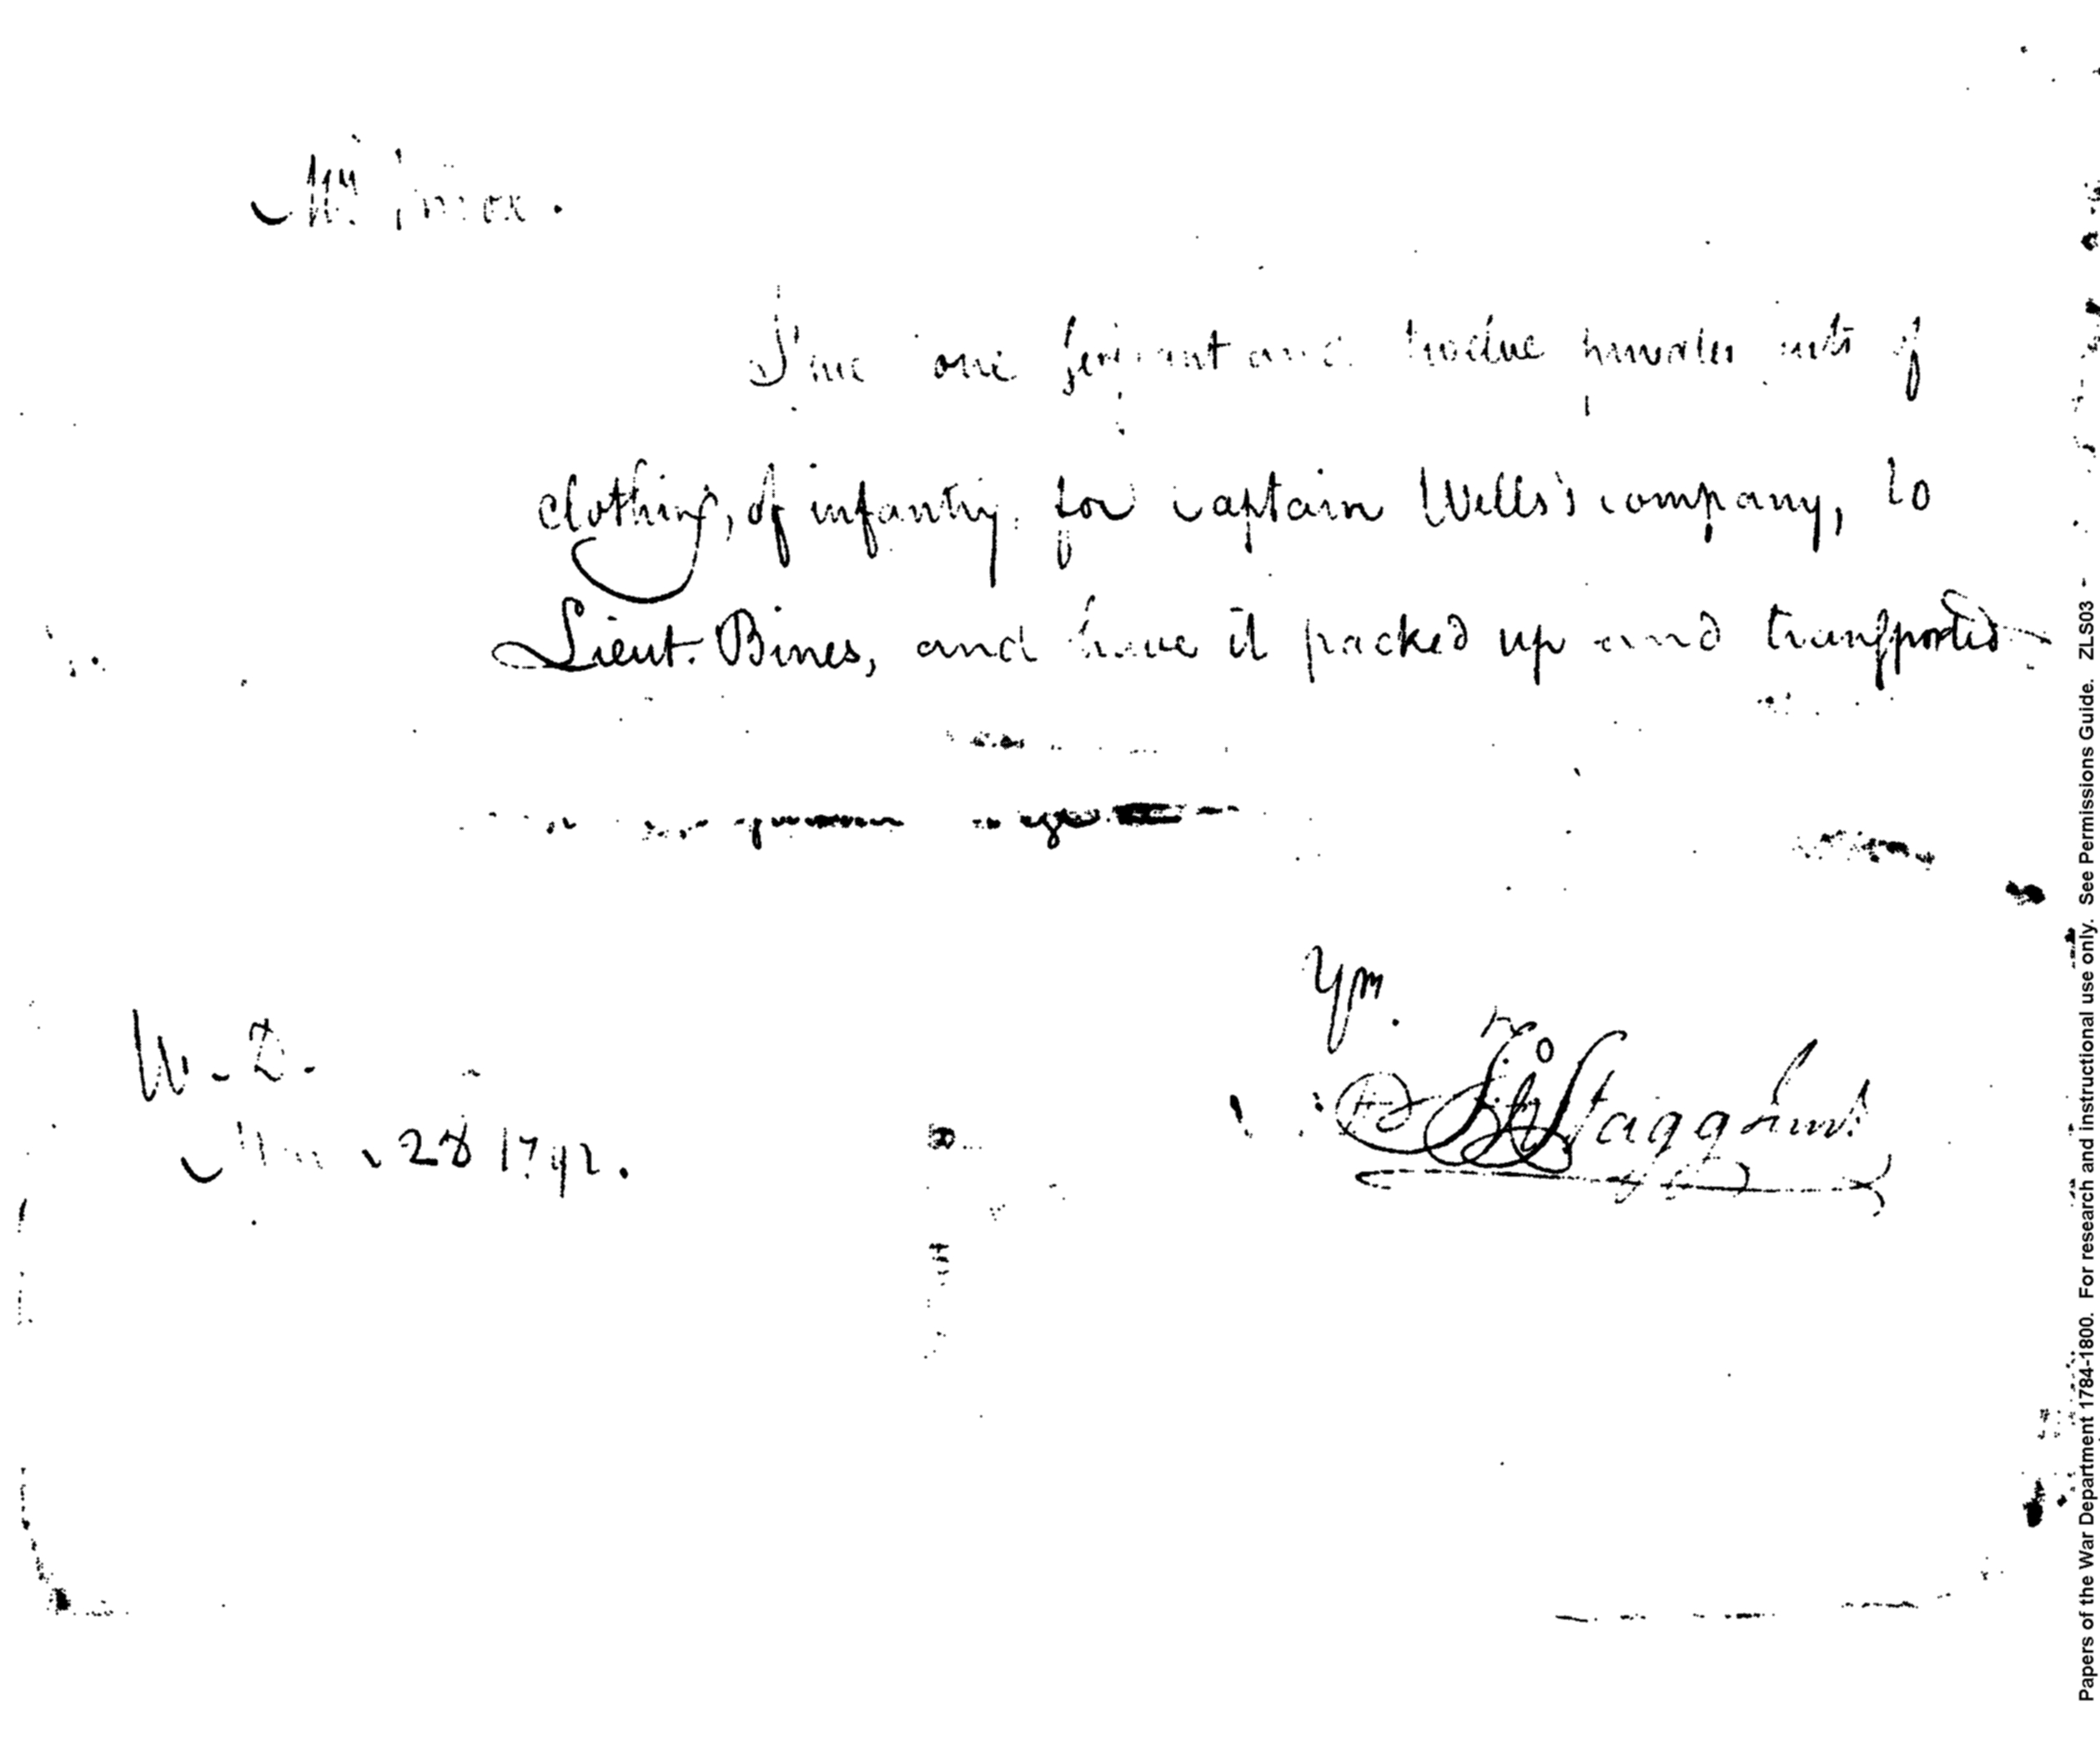 Mr
one and twelve sets of
clothing, of infantry, for captain Wells's company, to
Lieut. Bines, and have it packed up and transported
Ym.
Jno Stagg Junr.
W. D.
28 1792.
Papers of the War Department 1784-1800. For research and instructional use only. See Permissions Guide. ZLS03